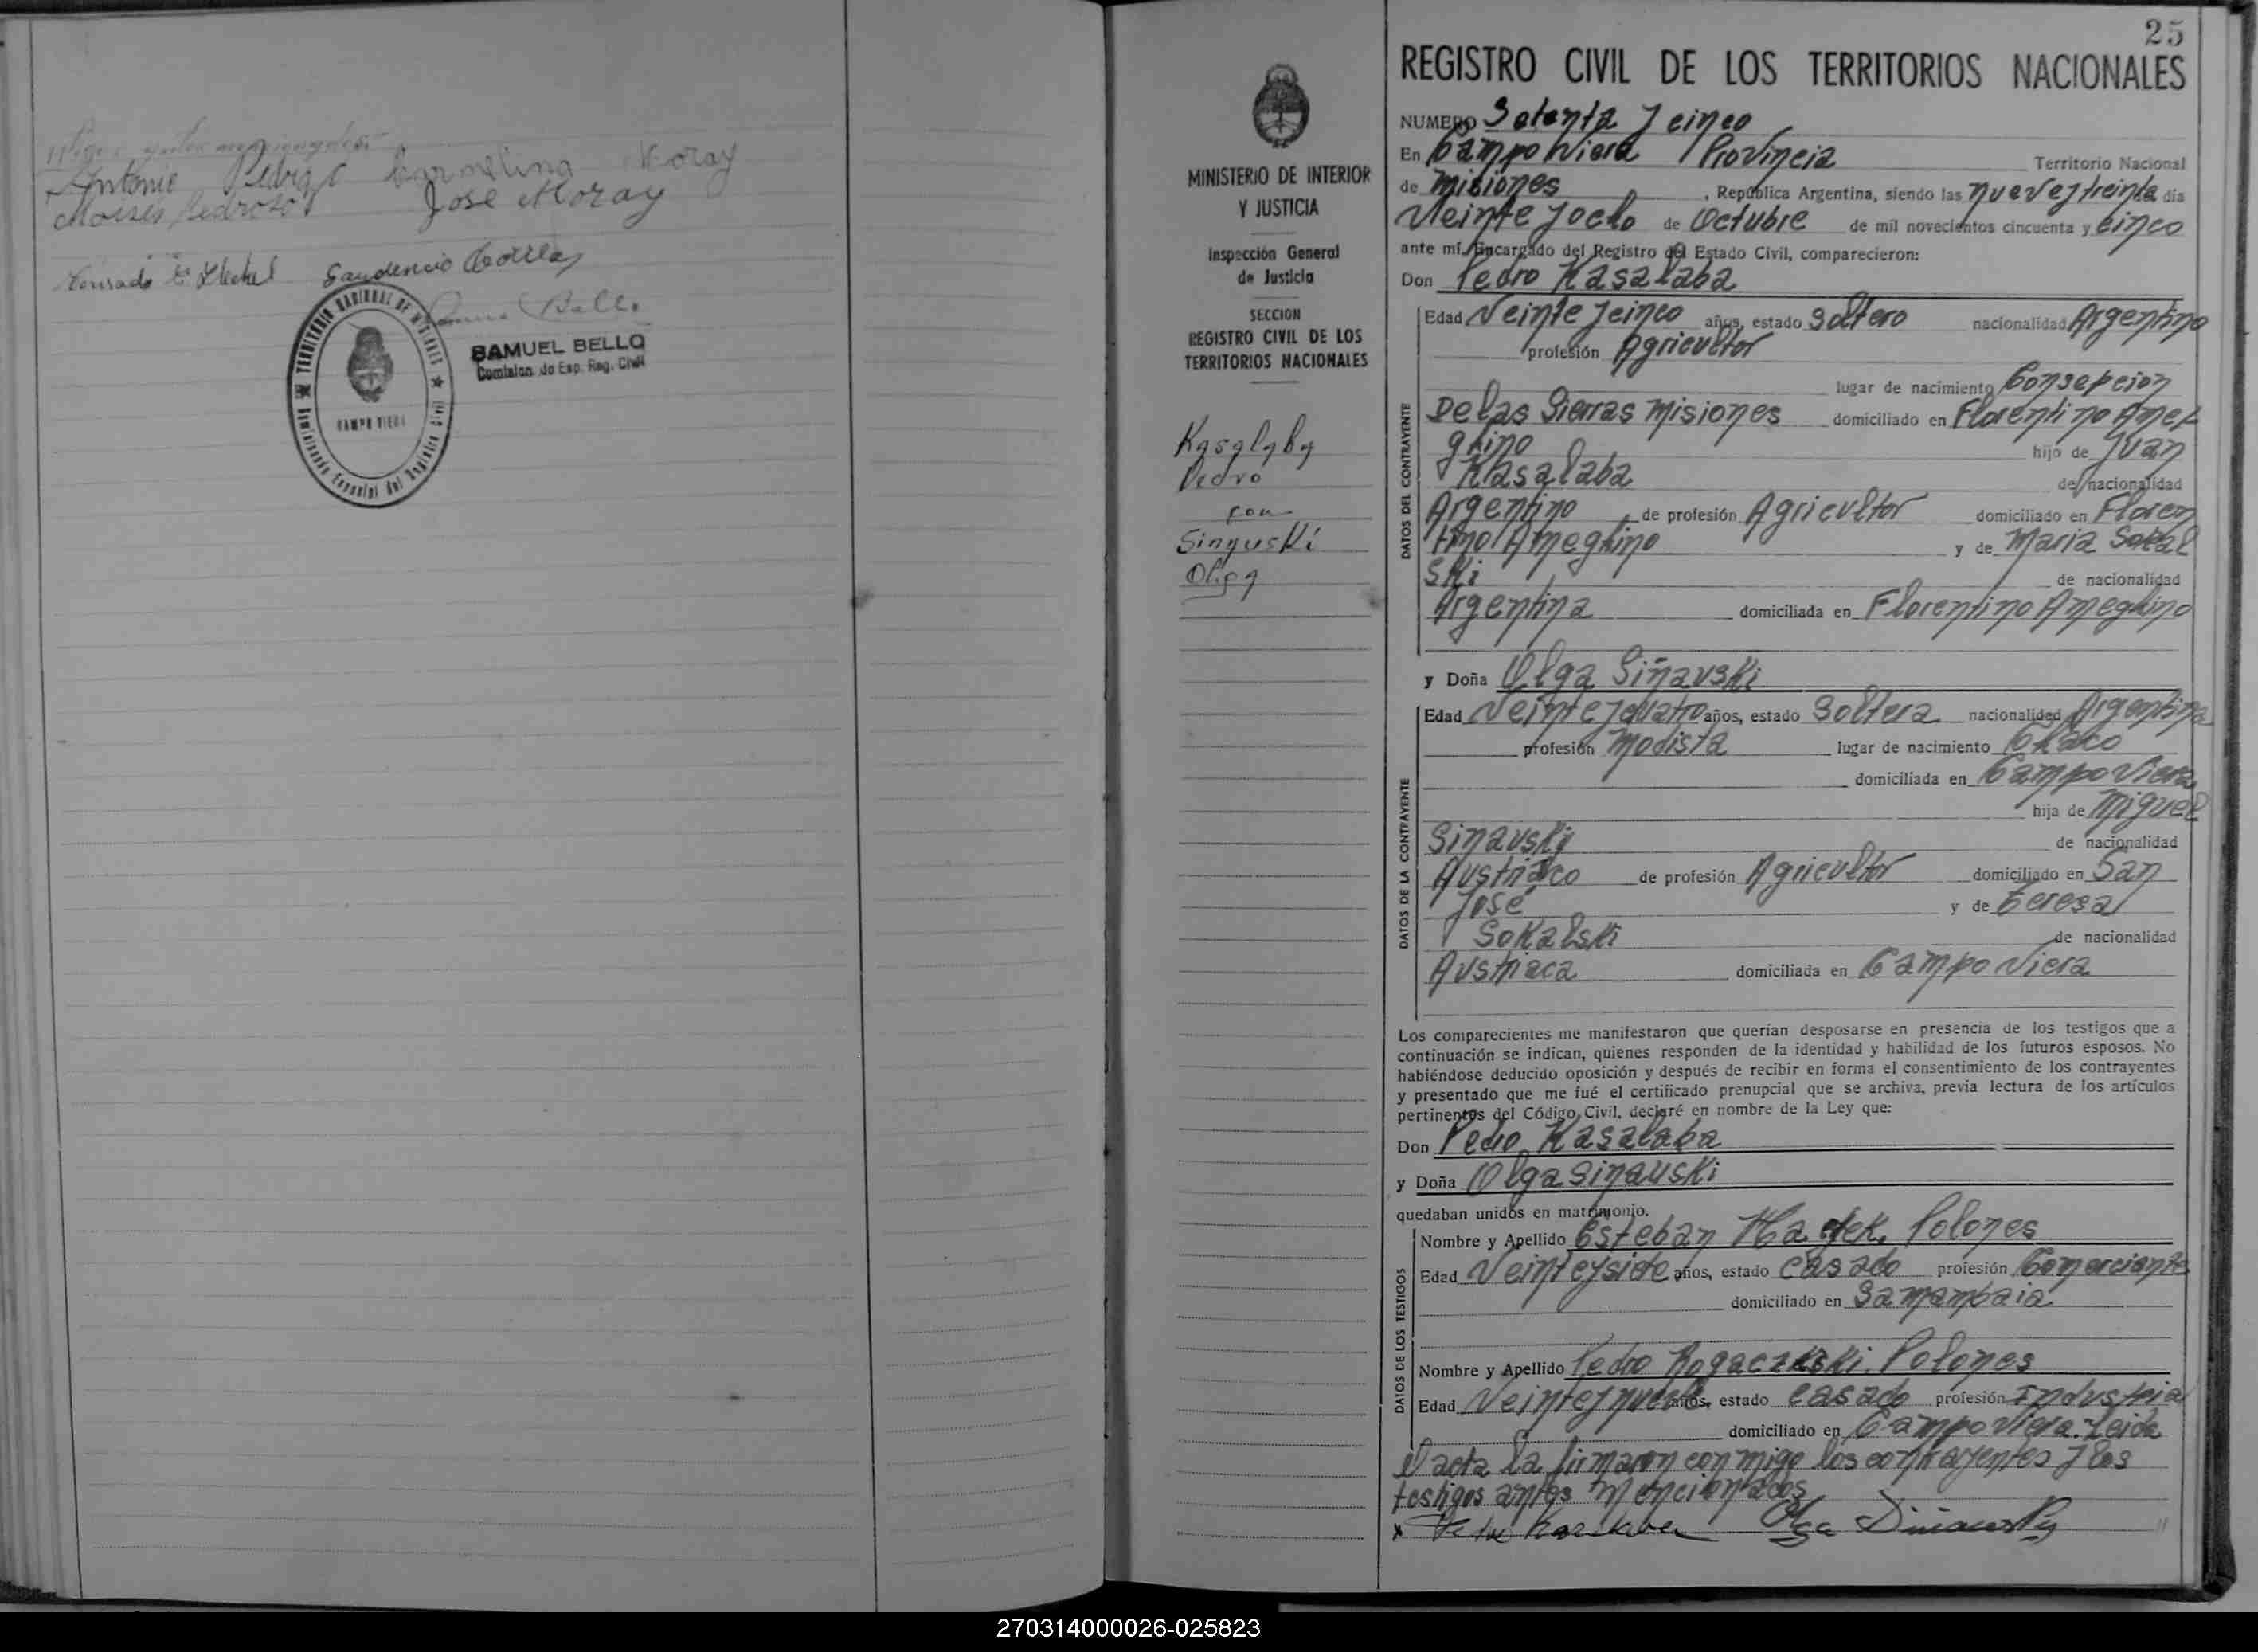 Antonio Pedrozo Carmelina Moray
Moises Pedrozo José Moray
Gaudencio
SAMUEL BELLO
Comision. de Esp. Reg. Civil
TERRITORIO NACIONAL DE MISIONES
CAMPO VIERA
25
REGISTRO CIVIL DE LOS TERRITORIOS NACIONALES
MINISTERIO DE INTERIOR
Y JUSTICIA
Inspección General
de Justicia
SECCION
REGISTRO CIVIL DE LOS
TERRITORIOS NACIONALES
Kasalaba
Pedro
con
Sinauski
Olga
NUMERO Setenta y cinco
En Campo Viera Provincia Territorio Nacional
de Misiones, República Argentina, siendo las nueve y treinta día
Veinte y ocho de Octubre de mil novecientos cincuenta y cinco
ante mí, Encargado del Registro del Estado Civil, comparecieron:
Don Pedro Kasalaba
Edad Veinte y cinco años, estado Soltero nacionalidad Argentino
profesión Agricultor
lugar de nacimiento Consepcion
DATOS DEL CONTRAYENTE
De las Sierras Misiones domiciliado en Florentino Ame
ghino hijo de Juan
Kasalaba de nacionalidad
Argentino de profesión Agricultor domiciliado en Floren
tino Ameghino y de Maria Sokal
ski de nacionalidad
Argentina domiciliada en Florentino Ameghino
y Doña Olga Siñauski
Edad Veinte y cuatro años, estado Soltera nacionalidad Argentina
profesión Modista lugar de nacimiento Chaco
domiciliada en Campo Viera
hija de Miguel
DATOS DE LA CONTRAYENTE
Sinauski de nacionalidad
Austriaco de profesión Agricultor domiciliado en San
José y de Teresa
Sokalski de nacionalidad
Austriaca domiciliada en Campo Viera
Los comparecientes me manifestaron que querían desposarse en presencia de los testigos que a
continuación se indican, quienes responden de la identidad y habilidad de los futuros esposos. No
habiéndose deducido oposición y después de recibir en forma el consentimiento de los contrayentes
y presentado que me fué el certificado prenupcial que se archiva, previa lectura de los artículos
pertinentes del Código Civil, declaré en nombre de la Ley que:
Don Pedro Kasalaba
y Doña Olga Sinauski
quedaban unidos en matrimonio.
Nombre y Apellido Esteban Polones
Edad Veinte y siete años, estado Casado profesión Comerciante
domiciliado en Samambaia
DATOS DE LOS TESTIGOS
Nombre y Apellido Pedro Polones
Edad Veinte y nueve años, estado casado profesión Industrial
domiciliado en Campo Viera. Leida
el acta la firmaron conmigo los contrayentes y los
testigos antes mencionados
Olga
270314000026-025823